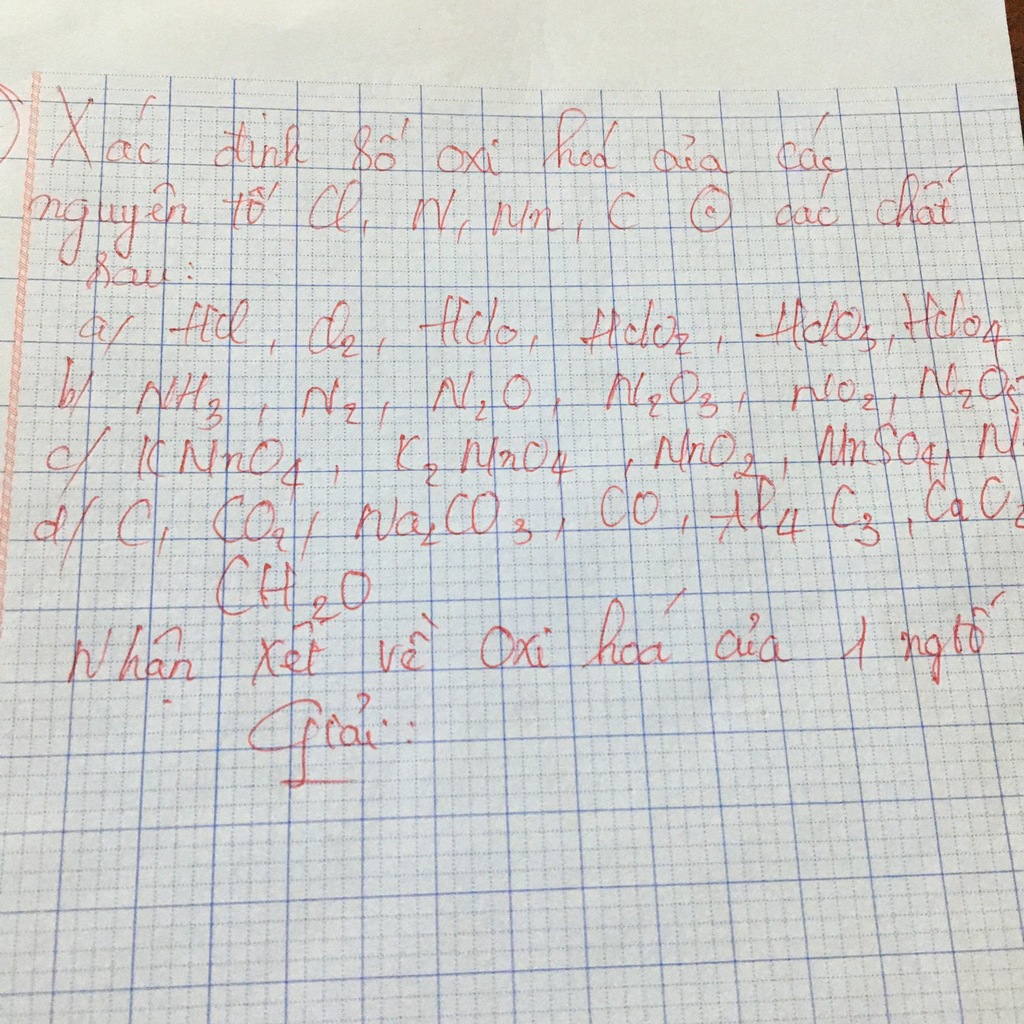 Xác định số oxi hoá của các
nguyên tố Cl, N, Mn, C © các chất
sau:
a/ HCl, Cl₂, HClO, HClO₂, HClO₃, HClO₄
b/ NH₃, N₂, N₂O, N₂O₃, NO₂, N₂O₅
c/ KMnO₄, K₂MnO₄, MnO₂, MnSO₄,
d/ C, CO₂, Na₂CO₃, CO, Al₄C₃, CaC₂
CH₂O
Nhận xét về oxi hoá của 1 ngtố
Giải: